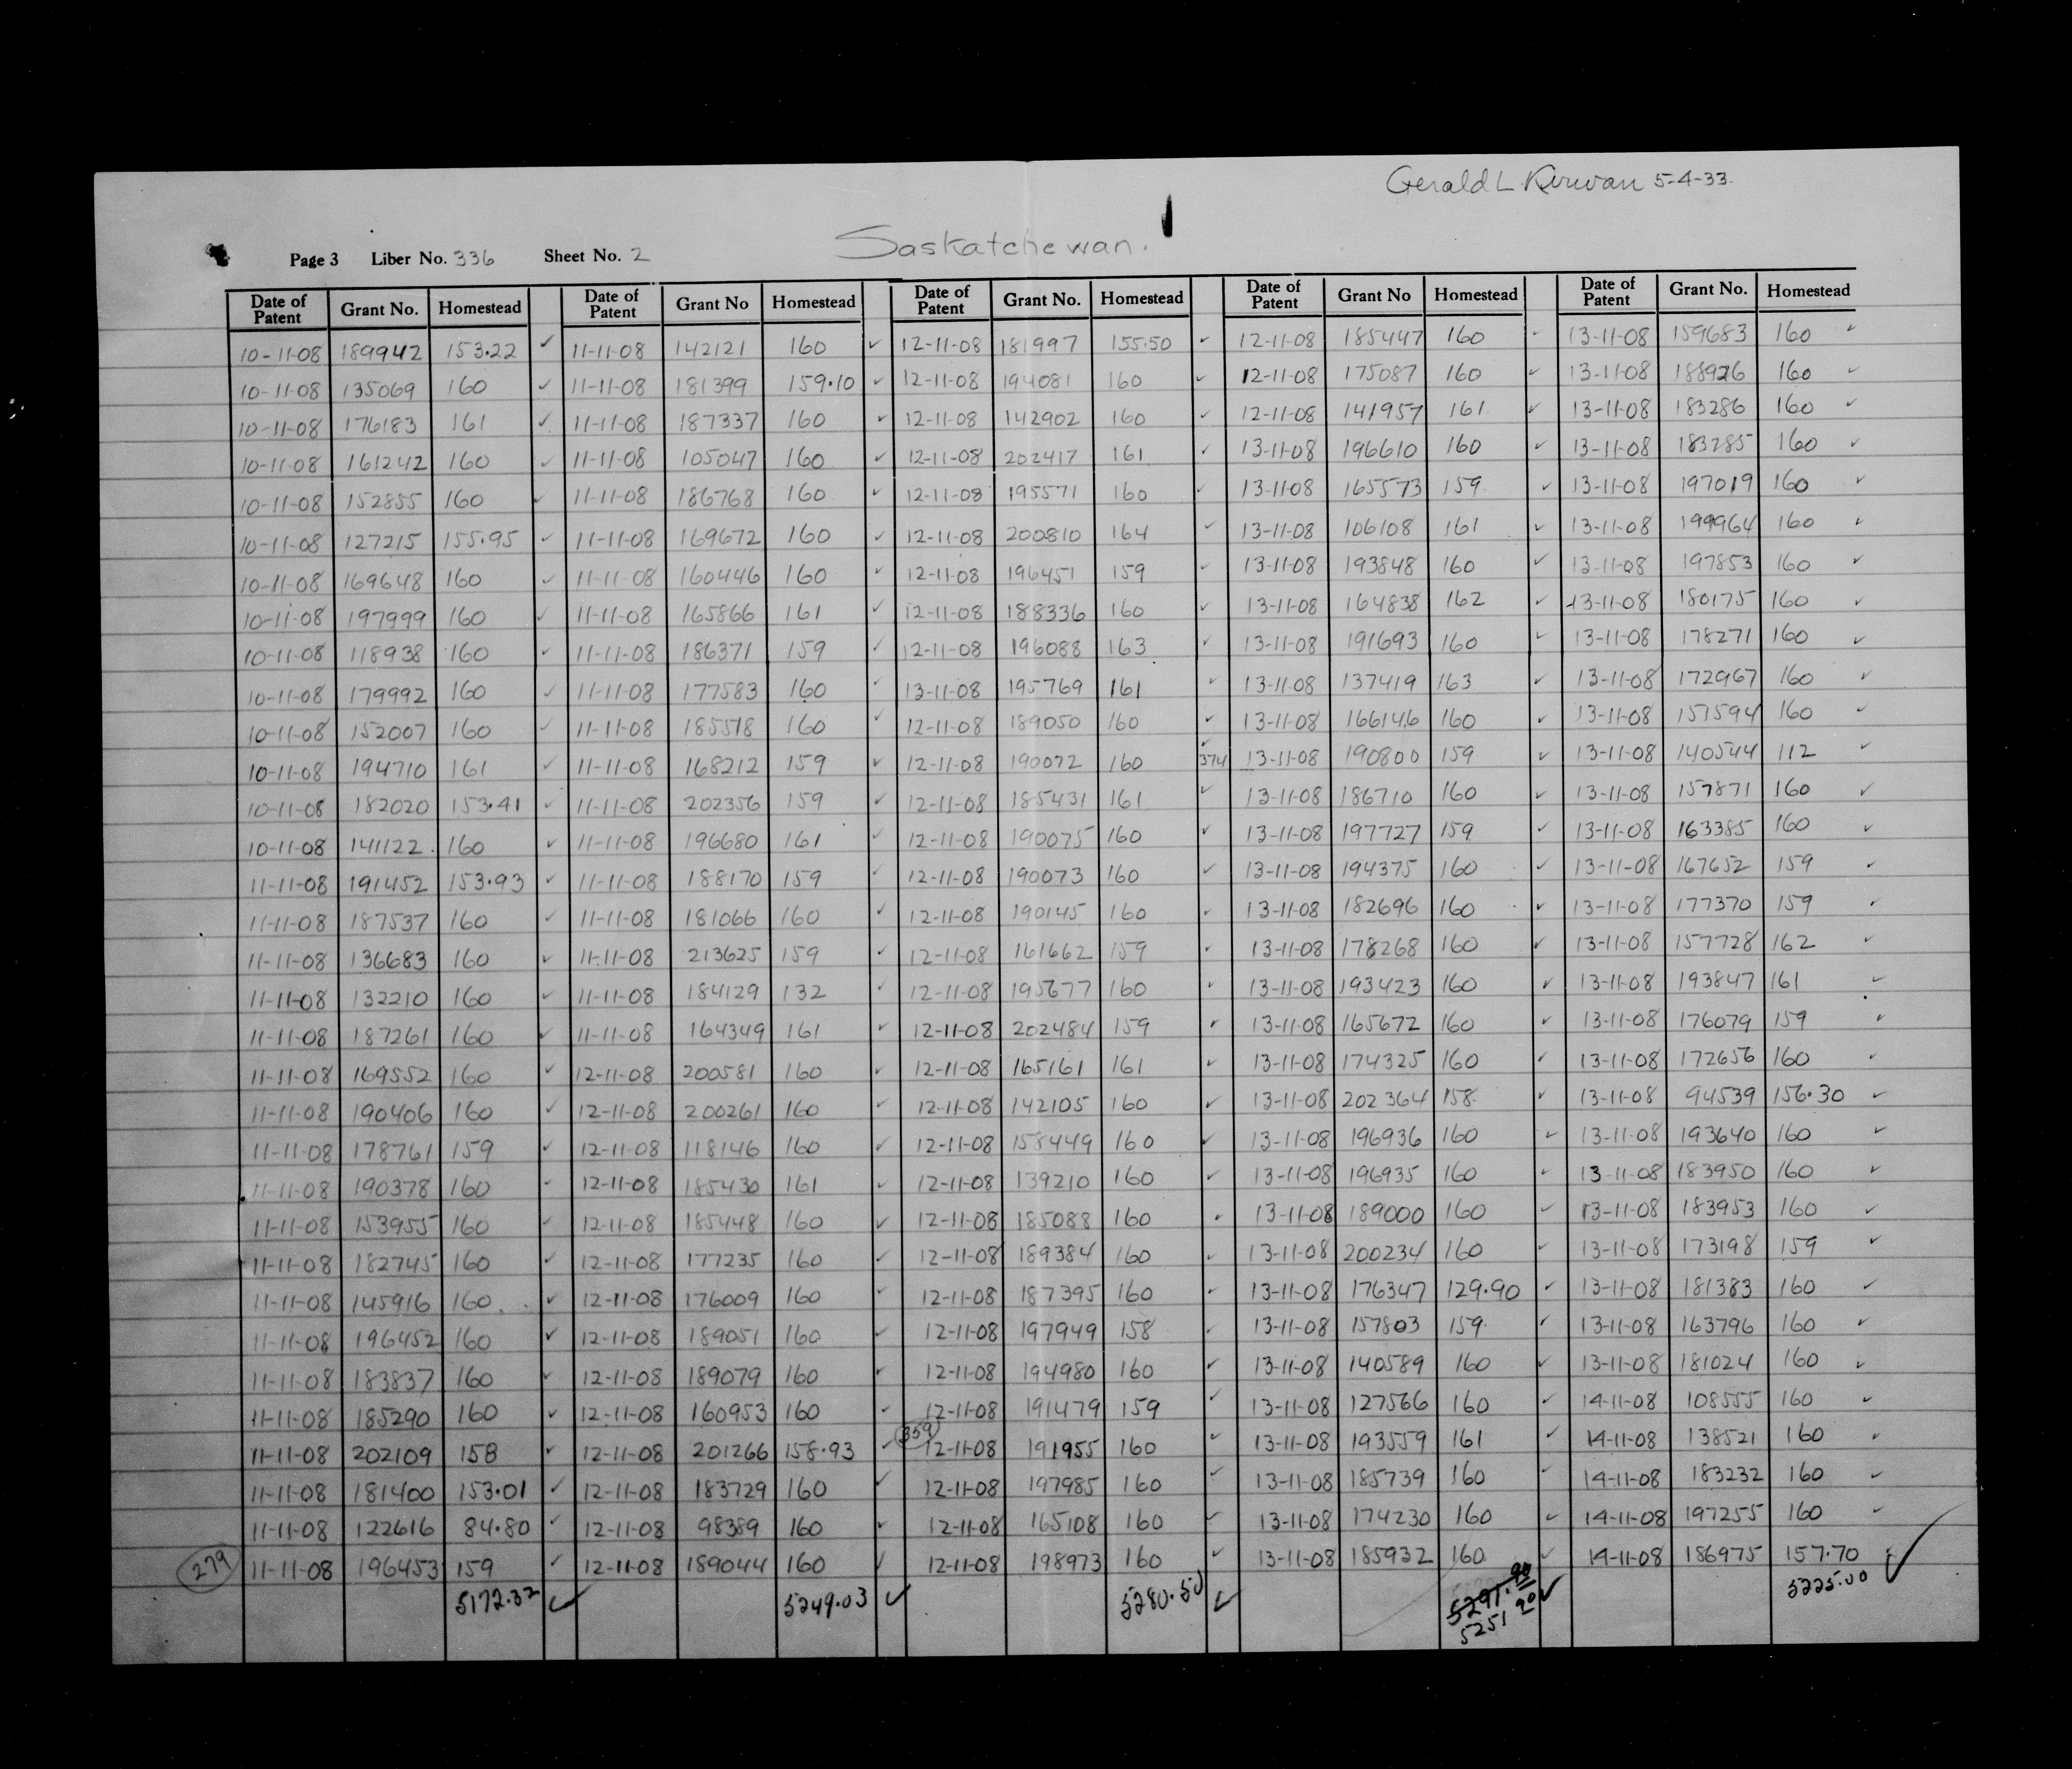 Gerald L. Kirwan 5-4-33.
Saskatchewan.
Page 3 Liber No. 336 Sheet No. 2
Date of Patent Grant No. Homestead Date of Patent Grant No Homestead Date of Patent Grant No. Homestead Date of Patent Grant No Homestead Date of Patent Grant No. Homestead
10-11-08 189942 153.22 ✓ 11-11-08 142121 160 ✓ 12-11-08 181997 155.50 ✓ 12-11-08 185447 160 ✓ 13-11-08 159683 160 ✓
10-11-08 135069 160 ✓ 11-11-08 181399 159.10 ✓ 12-11-08 194081 160 ✓ 12-11-08 175087 160 ✓ 13-11-08 188926 160 ✓
10-11-08 176183 161 ✓ 11-11-08 187337 160 ✓ 12-11-08 142902 160 ✓ 12-11-08 141957 161 ✓ 13-11-08 183286 160 ✓
10-11-08 161242 160 ✓ 11-11-08 105047 160 ✓ 12-11-08 202417 161 ✓ 13-11-08 196610 160 ✓ 13-11-08 183285 160 ✓
10-11-08 152855 160 ✓ 11-11-08 186768 160 ✓ 12-11-08 195571 160 ✓ 13-11-08 165573 159 ✓ 13-11-08 197019 160 ✓
10-11-08 127215 155.95 ✓ 11-11-08 169672 160 ✓ 12-11-08 200810 164 ✓ 13-11-08 106108 161 ✓ 13-11-08 199964 160 ✓
10-11-08 169648 160 ✓ 11-11-08 160446 160 ✓ 12-11-08 196451 159 ✓ 13-11-08 193848 160 ✓ 13-11-08 197853 160 ✓
10-11-08 197999 160 ✓ 11-11-08 165866 161 ✓ 12-11-08 188336 160 ✓ 13-11-08 164838 162 ✓ 13-11-08 180175 160 ✓
10-11-08 118938 160 ✓ 11-11-08 186371 159 ✓ 12-11-08 196088 163 ✓ 13-11-08 191693 160 ✓ 13-11-08 178271 160 ✓
10-11-08 179992 160 ✓ 11-11-08 177583 160 ✓ 13-11-08 195769 161 ✓ 13-11-08 137419 163 ✓ 13-11-08 172967 160 ✓
10-11-08 152007 160 ✓ 11-11-08 185518 160 ✓ 12-11-08 189050 160 ✓ 13-11-08 166146 160 ✓ 13-11-08 151594 160 ✓
10-11-08 194710 161 ✓ 11-11-08 168212 159 ✓ 12-11-08 190072 160 ✓ 374 13-11-08 190800 159 ✓ 13-11-08 140544 112 ✓
10-11-08 182020 153.41 ✓ 11-11-08 202356 159 ✓ 12-11-08 185431 161 ✓ 13-11-08 186710 160 ✓ 13-11-08 157871 160 ✓
10-11-08 141122 160 ✓ 11-11-08 196680 161 ✓ 12-11-08 190075 160 ✓ 13-11-08 197727 159 ✓ 13-11-08 163385 160 ✓
11-11-08 191452 153.93 ✓ 11-11-08 188170 159 ✓ 12-11-08 190073 160 ✓ 13-11-08 194375 160 ✓ 13-11-08 167652 159 ✓
11-11-08 187537 160 ✓ 11-11-08 181066 160 ✓ 12-11-08 190145 160 ✓ 13-11-08 182696 160 ✓ 13-11-08 177370 159 ✓
11-11-08 136683 160 ✓ 11-11-08 213625 159 ✓ 12-11-08 161662 159 ✓ 13-11-08 178268 160 ✓ 13-11-08 157728 162 ✓
11-11-08 132210 160 ✓ 11-11-08 184129 132 ✓ 12-11-08 195677 160 ✓ 13-11-08 193423 160 ✓ 13-11-08 193847 161 ✓
11-11-08 187261 160 ✓ 11-11-08 164349 161 ✓ 12-11-08 202484 159 ✓ 13-11-08 165672 160 ✓ 13-11-08 176079 159 ✓
11-11-08 169552 160 ✓ 12-11-08 200581 160 ✓ 12-11-08 165161 161 ✓ 13-11-08 174325 160 ✓ 13-11-08 172656 160 ✓
11-11-08 190406 160 ✓ 12-11-08 200261 160 ✓ 12-11-08 142105 160 ✓ 13-11-08 202364 158 ✓ 13-11-08 94539 156.30 ✓
11-11-08 178761 159 ✓ 12-11-08 118146 160 ✓ 12-11-08 158449 160 ✓ 13-11-08 196936 160 ✓ 13-11-08 193640 160 ✓
11-11-08 190378 160 ✓ 12-11-08 185430 161 ✓ 12-11-08 139210 160 ✓ 13-11-08 196935 160 ✓ 13-11-08 183950 160 ✓
11-11-08 153955 160 ✓ 12-11-08 185448 160 ✓ 12-11-08 185088 160 ✓ 13-11-08 189000 160 ✓ 13-11-08 183953 160 ✓
11-11-08 182745 160 ✓ 12-11-08 177235 160 ✓ 12-11-08 189384 160 ✓ 13-11-08 200234 160 ✓ 13-11-08 173198 159 ✓
11-11-08 145916 160 ✓ 12-11-08 176009 160 ✓ 12-11-08 187395 160 ✓ 13-11-08 176347 129.90 ✓ 13-11-08 181383 160 ✓
11-11-08 196452 160 ✓ 12-11-08 189051 160 ✓ 12-11-08 197949 158 ✓ 13-11-08 157803 159 ✓ 13-11-08 163796 160 ✓
11-11-08 183837 160 ✓ 12-11-08 189079 160 ✓ 12-11-08 194980 160 ✓ 13-11-08 140589 160 ✓ 13-11-08 181024 160 ✓
11-11-08 185290 160 ✓ 12-11-08 160953 160 ✓ 12-11-08 191479 159 ✓ 13-11-08 127566 160 ✓ 14-11-08 108555 160 ✓
11-11-08 202109 158 ✓ 12-11-08 201266 158.93 ✓ 359 12-11-08 191955 160 ✓ 13-11-08 193559 161 ✓ 14-11-08 138521 160 ✓
11-11-08 181400 153.01 ✓ 12-11-08 183729 160 ✓ 12-11-08 197985 160 ✓ 13-11-08 185739 160 ✓ 14-11-08 183232 160 ✓
11-11-08 122616 84.80 ✓ 12-11-08 98389 160 ✓ 12-11-08 165108 160 ✓ 13-11-08 174230 160 ✓ 14-11-08 197255 160 ✓
279 11-11-08 196453 159 ✓ 12-11-08 189044 160 ✓ 12-11-08 198973 160 ✓ 13-11-08 185932 160 ✓ 14-11-08 186975 157.70 ✓
5172.32 ✓ 5249.03 ✓ 5280.50 ✓ 5291.90 ✓ 5225.00 ✓
5251 90